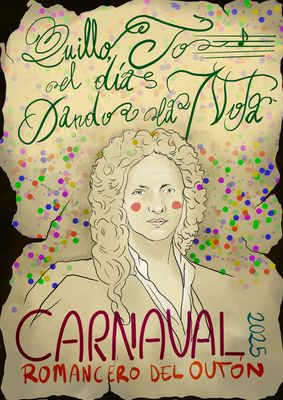 Quillo, To
el día
Dando la Nota
CARNAVAL
2025
ROMANCERO DEL OUTÓN